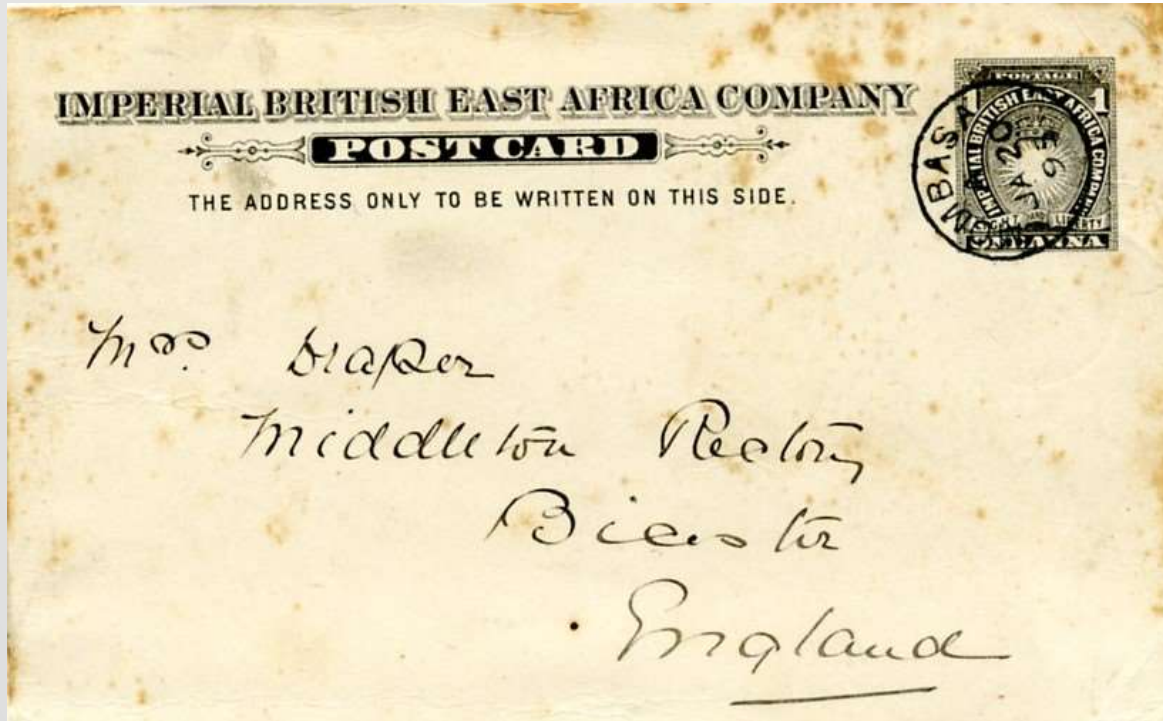 IMPERIAL BRITISH EAST AFRICA COMPANY
POST CARD
THE ADDRESS ONLY TO BE WRITTEN ON THIS SIDE.
POSTAGE
1 1
IMPERIAL BRITISH EAST AFRICA COMPANY
LIGHT AND LIBERTY
ONE ANNA
MOMBASA
JA 20
Mrs. Draper
Middleton Rectory
Bicester
England